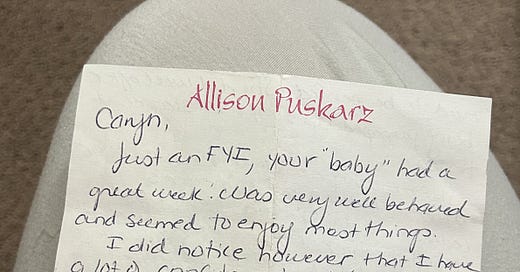 Allison Puskarz
Caryn,
Just an FYI, your "baby" had a
great week. Was very well behaved
and seemed to enjoy most things.
I did notice however that I have
a lot